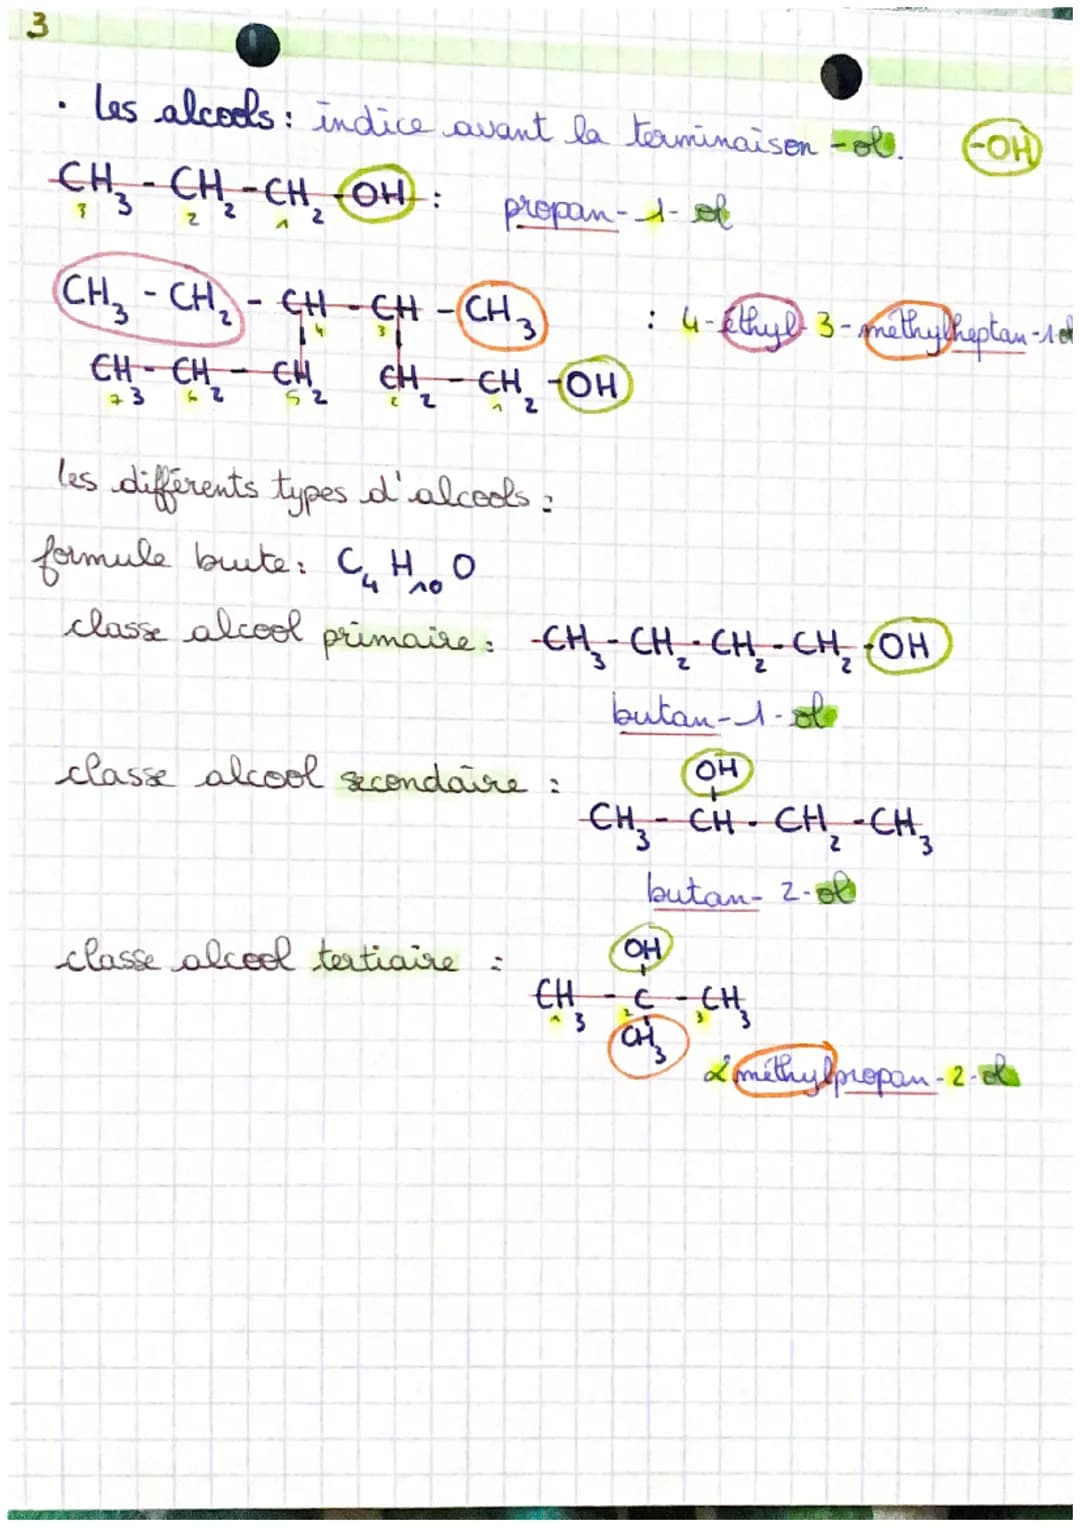 3
· Les alcools : indice avant la terminaison -ol. -OH
CH₃ - CH₂ - CH₂ - OH : propan-1-ol
3 2 1
CH₃ - CH₂ - CH - CH - CH₃ : 4-éthyl-3-méthylheptan-1-ol
4 3
CH₃ - CH₂ - CH₂ CH₂ - CH₂ - OH
7 6 5 2 1
les différents types d'alcools :
formule brute : C₄ H₁₀ O
classe alcool primaire : CH₃ - CH₂ - CH₂ - CH₂ - OH
butan-1-ol
OH
classe alcool secondaire : CH₃ - CH - CH₂ - CH₃
butan-2-ol
OH
classe alcool tertiaire : CH₃ - C - CH₃
1 2 3
CH₃
2 méthylpropan-2-ol